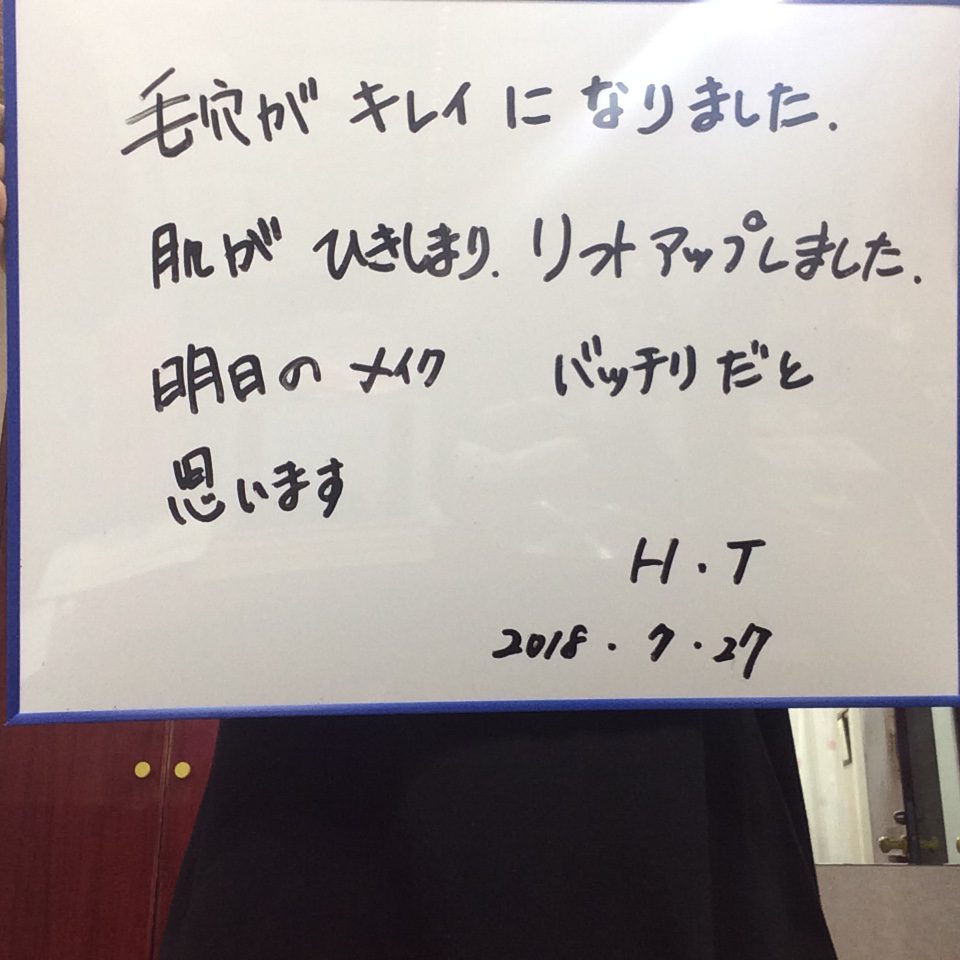 毛穴が キレイ に なりました.
肌が ひきしまり. リフトアップしました.
明日の メイク バッチリだと
思います
H.T
2018.7.27